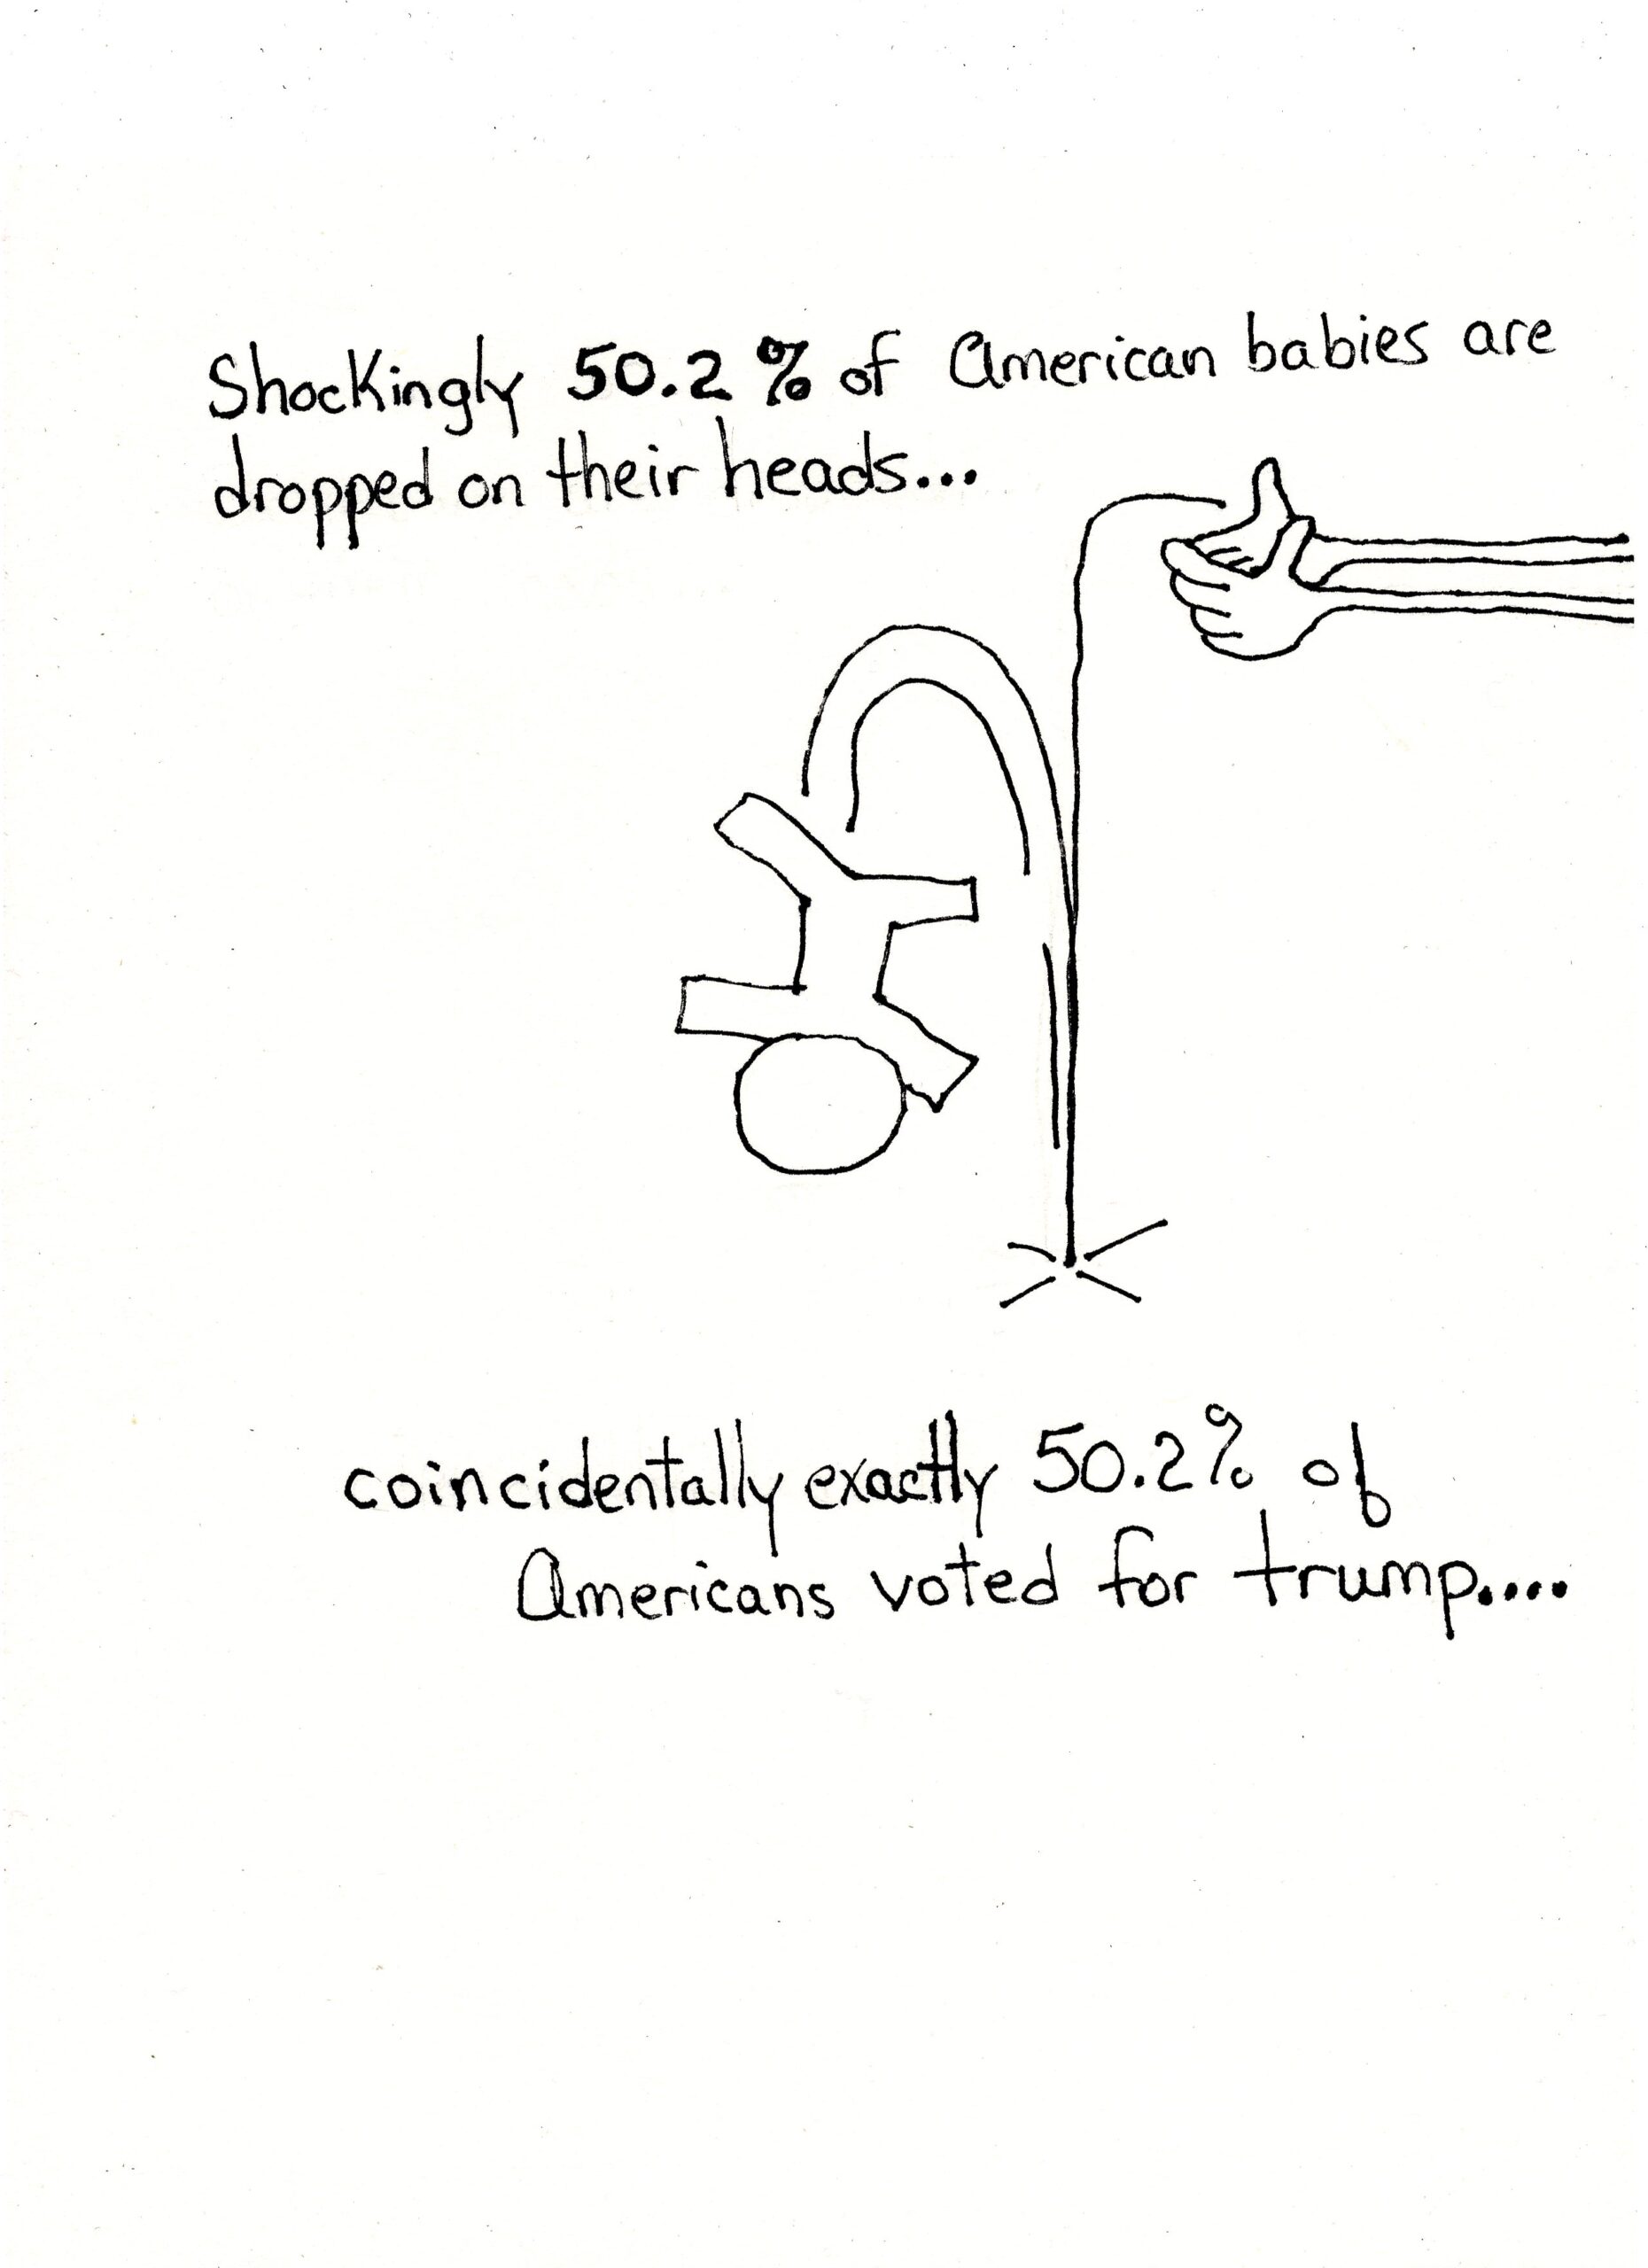 Shockingly 50.2% of American babies are
dropped on their heads...
coincidentally exactly 50.2% of
Americans voted for trump....